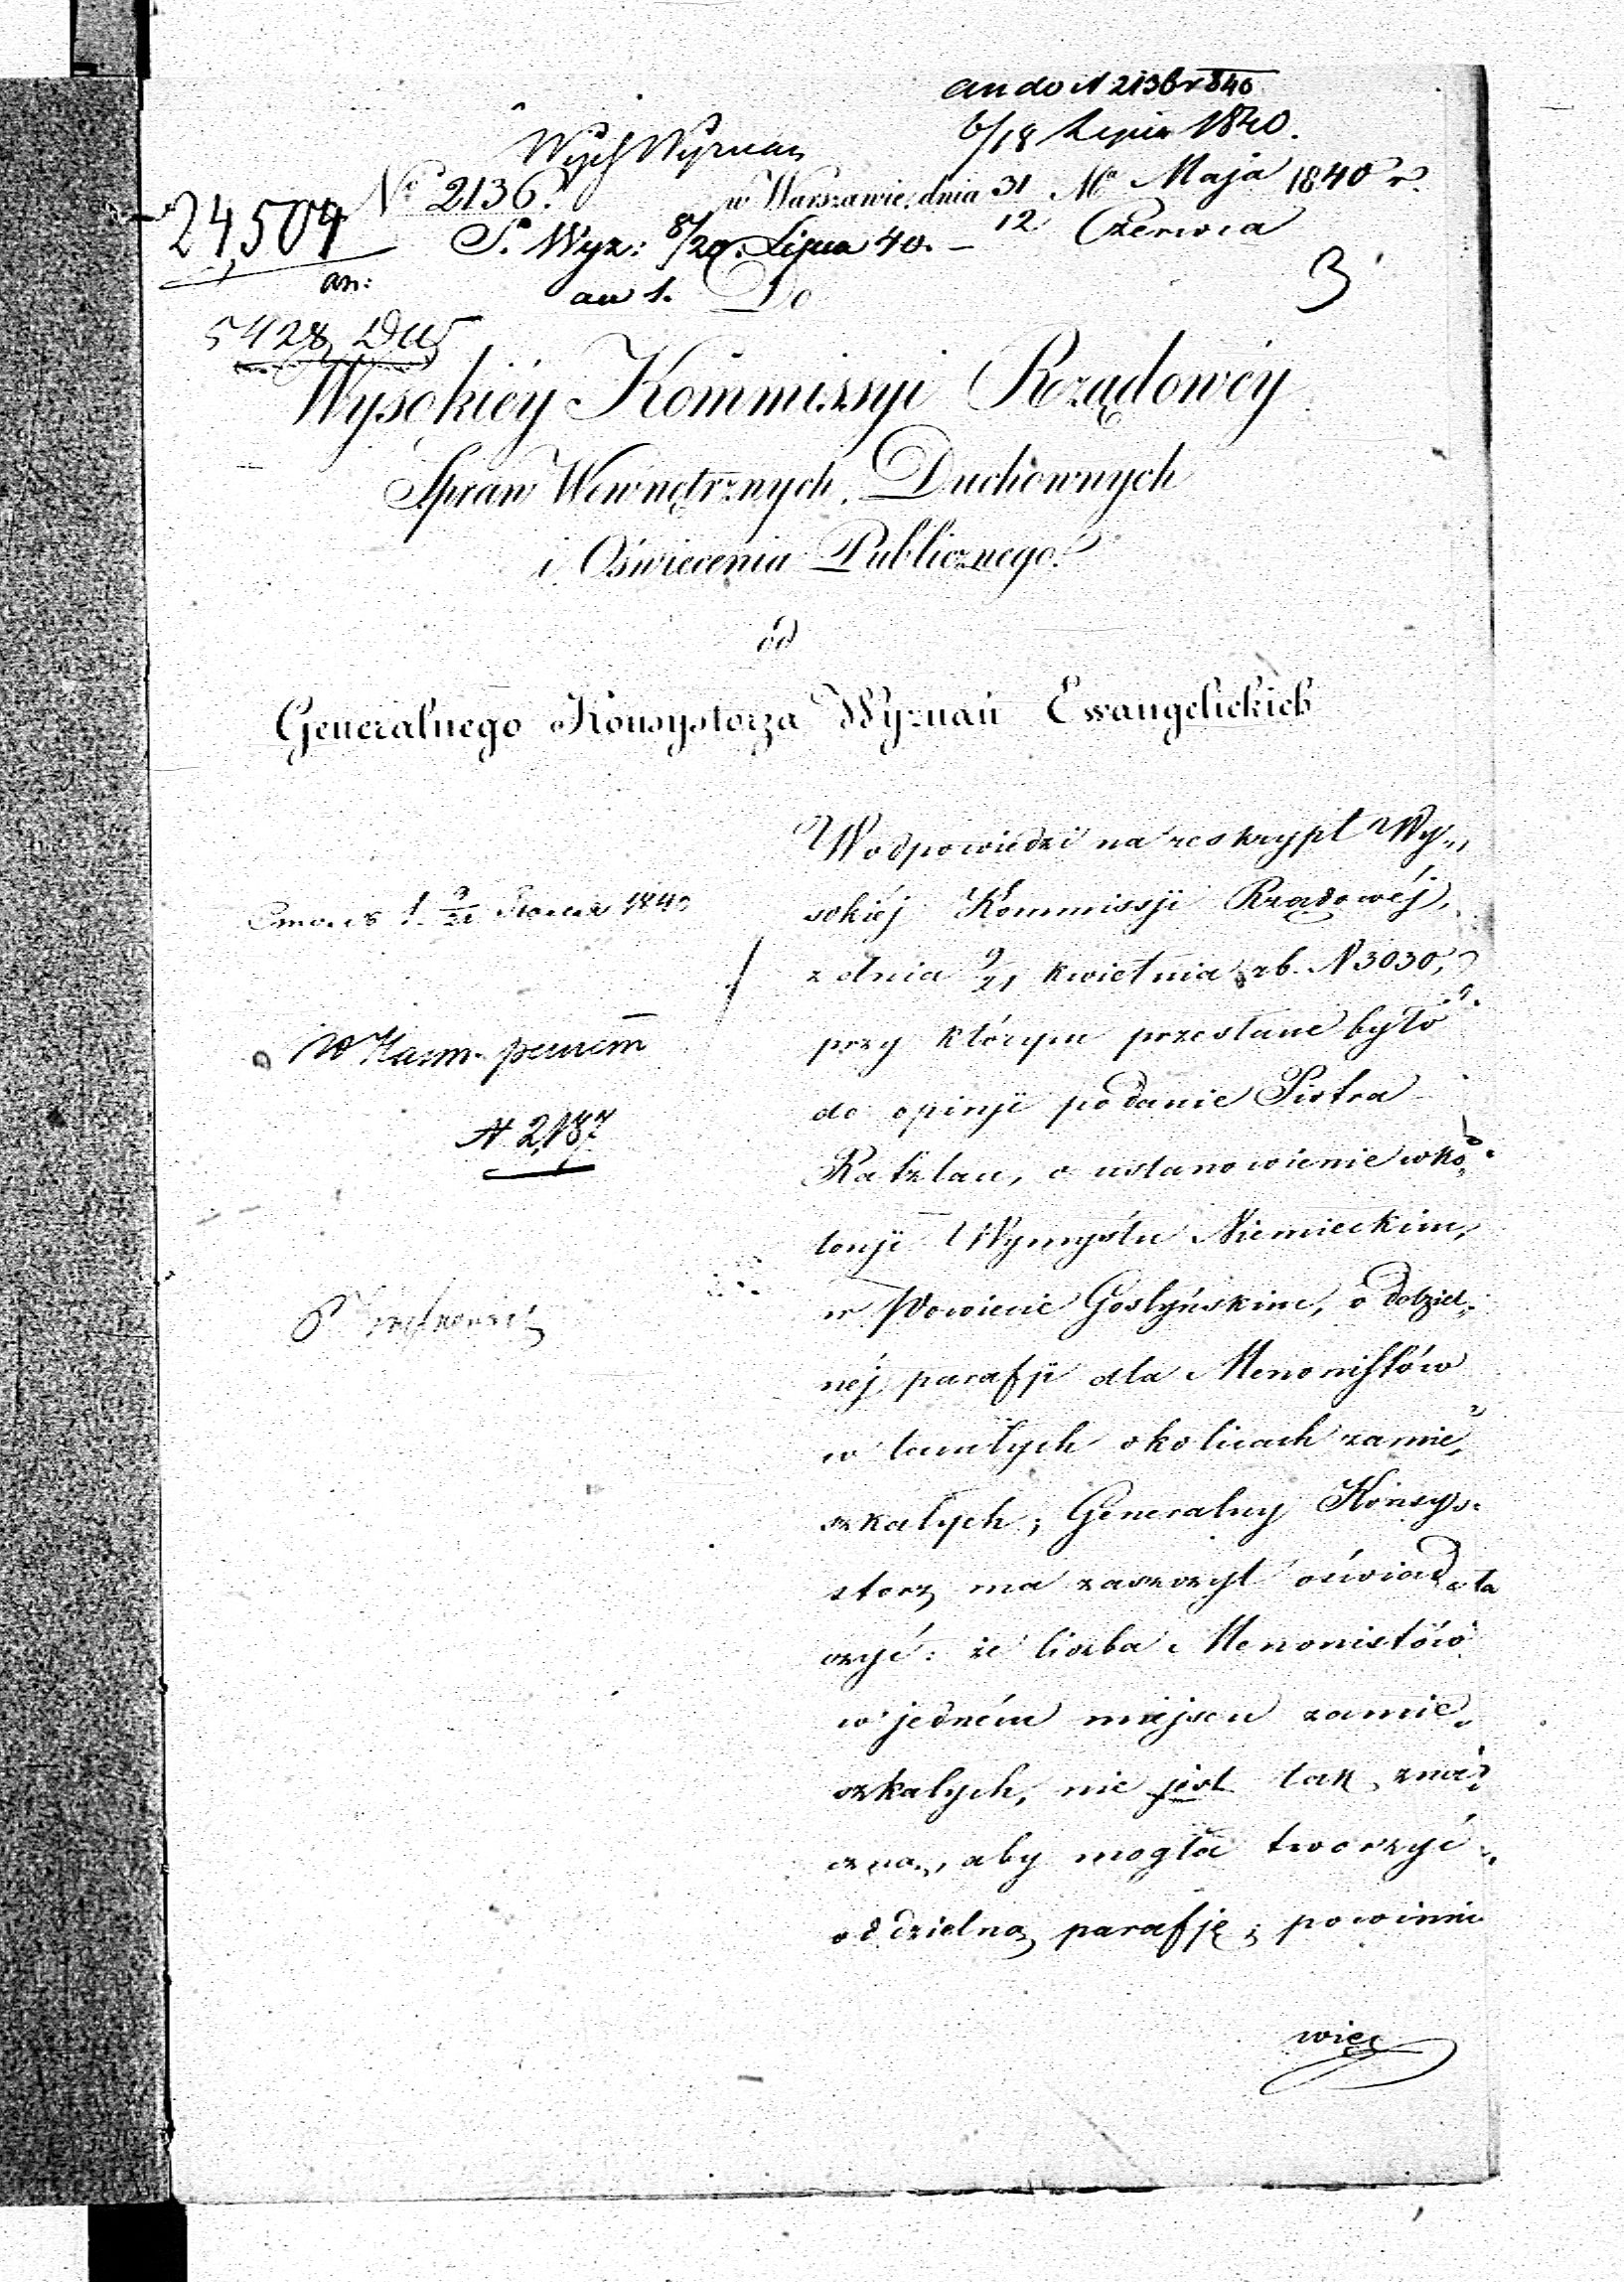 an do N 2136 r 840
6/18 Lipca 1840.
Wych Wyznań
No 2136. w Warszawie, dnia 31 Mca Maja 1840 r.
24,504 S. Wyz: 8/20. Lipca 40. – 12 Czerwca
an: an 1. Do 3
5428
Wysokiéy Kommissyi Rządowéy
Spraw Wewnętrznych, Duchownych
i Oświecenia Publicznego.
od
Generalnego Konsystorza Wyznań Ewangelickich
W odpowiedzi na reskrypt Wy„
sokiéj Kommissji Rządowéj,
z dnia 9/21 kwietnia rb. N 3030,
przy którym przesłane było
do opinji podanie Piotra
Ratzlau, o ustanowienie w ko„
lonji Wymyślu Niemieckim,
w Powiecie Gostyńskim, oddziel„
néj parafji dla Menonistów
w tamtych okolicach zamie„
szkałych; Generalny Konsy„
storz ma zaszczyt oświad„
czyć: że liczba Menonistów
w jedném miejscu zamie„
szkałych, nie jest tak zna„
czna, aby mogła tworzyć
oddzielną parafję; powinni
więc
1. 9/21 1840
N 2,187